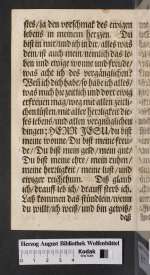 stes/ ja den vorschmak des ewigen
lebens in meinem hertzen. Du
bist in mir/und ich in dir: alles was
dein/ ist auch mein/ nemlich das le-
ben und ewige wonne und freude:
was acht ich des vergänglichen?
Weil ich dich habe/ so habe ich alles/
was mich hie zeitlich und dort ewig
erfreuen mag/ weg mit allen zeitli-
chen lüsten/ mit aller herꝛligkeit die-
ses lebens/ und allen vergänglichen
dingen: HERR JESU/ du bist
meine wonne/ Du bist meine freu-
de/ Du bist mein geld/ mein gut/
Du bist meine ehre/ mein ruhm/
meine herꝛligkeit/ meine lust/ und
ewiger reichthum. Deß glaub
ich/ drauff leb ich/ drauff sterb ich.
Laß kommen das stündlein/ wenn
du wilst/ ich weiß/ und bin gewiß/
daß
Herzog August Bibliothek Wolfenbüttel